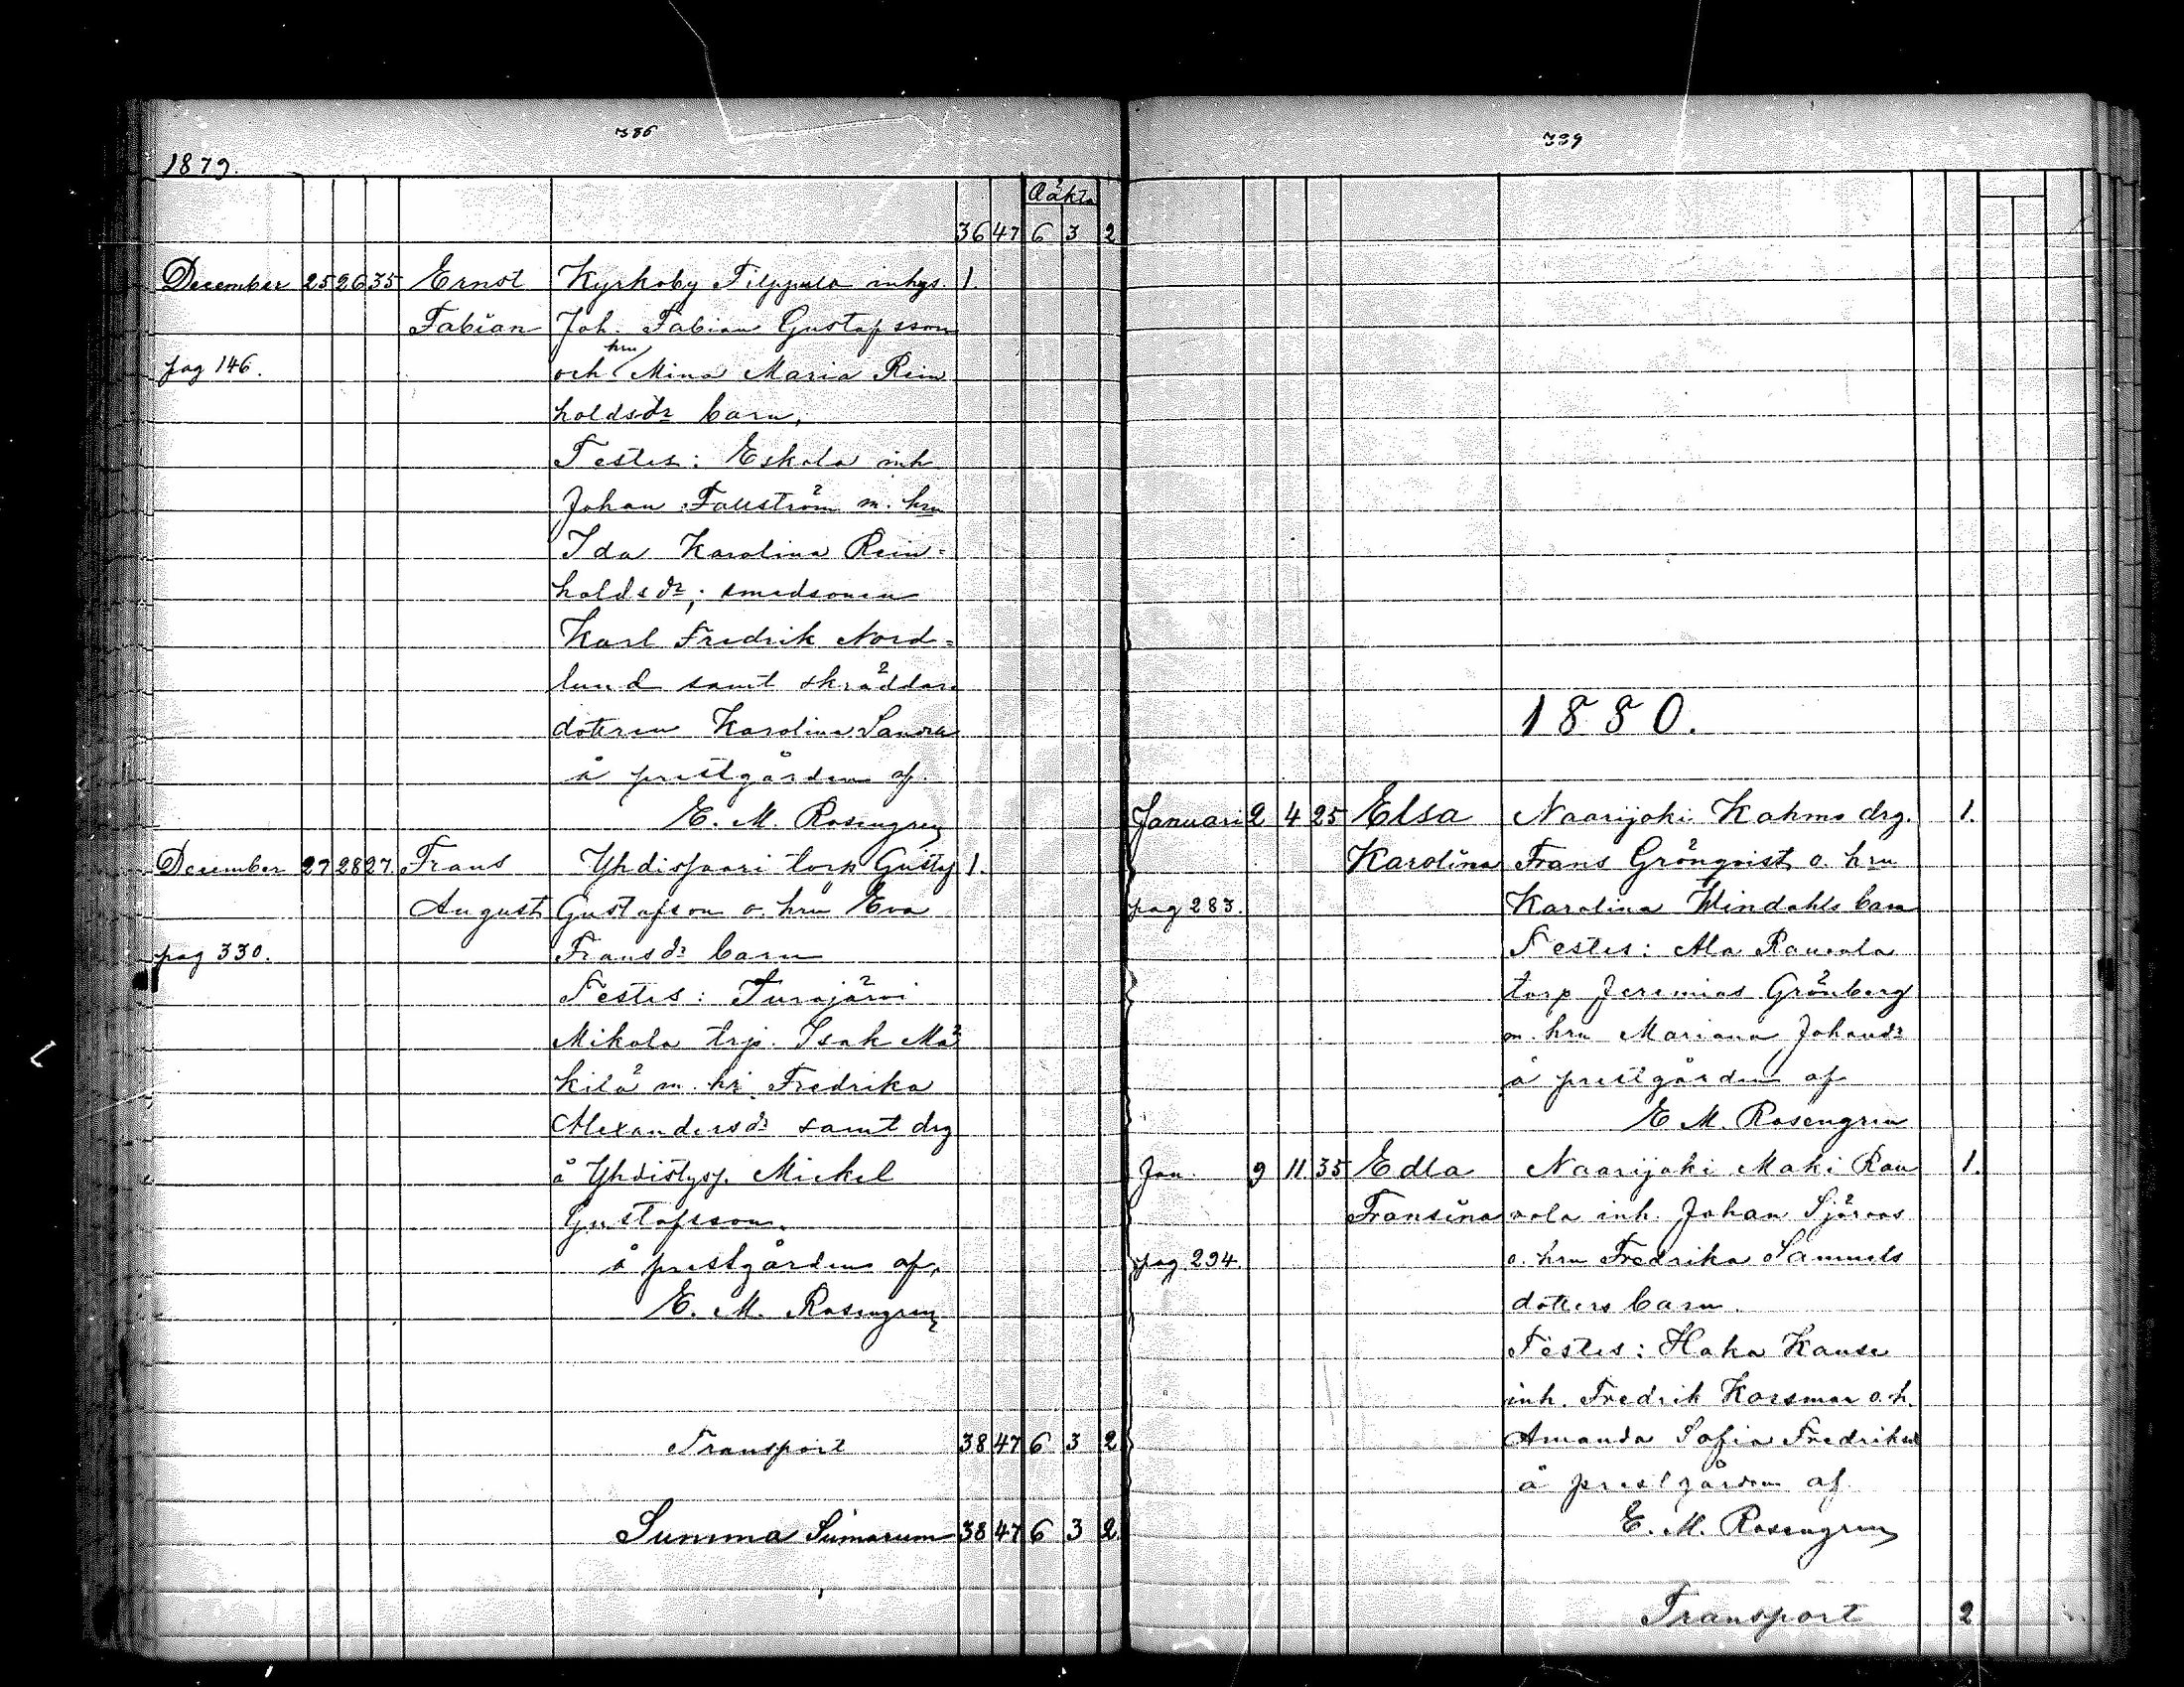 386
1879.
Oäkta
36 47 6 3 2
December 25 26 35 Ernst Kyrkoby Filppula inhys. 1.
Fabian Joh. Fabian Gustafsson
hru
pag 146. och Mina Maria Rein
holdsdr barn.
Testes: Eskola inh
Johan Fallström m. hru
Ida Karolina Rein=
holdsdr; smedsonen
Karl Fredrik Nord=
lund samt skräddare
dottren Karolina Sandra
å prestgården af
E. M. Rosengren
December 27 28 27. Frans Yhdisjaari torp Gustf 1.
August Gustafsson o. hru Eva
pag 330. Fransdr barn
Testes: Turajärvi
Mikola trp. Isak Mä
kilä m. hr. Fredrika
Alexandersdr samt drg
å Yhdistysj. Mickel
Gustafsson.
å prestgården af,
E. M. Rosengren
Transport 38 47 6 3 2
Summa Sumarum 38 47 6 3 2.
339
1880.
Januari 2 4 25 Elsa Naarijoki Kahma drg. 1.
Karolina Frans Grönqvist o. hru
pag 283. Karolina Windahls barn
Testes: Ala Rauvola
torp Jeremias Grönberg
m. hru Mariana Johansdr
å prestgården af
E M. Rosengren
Jan. 9 11. 35 Edla Naarijoki Maki Rau 1.
Fransina vola inh. Johan Sjöroos
pag 294. o. hru Fredrika Samuels
dotters barn.
Testes: Haka Kause
inh. Fredrik Korsman o. h.
Amanda Sofia Fredriksd
å prestgården af
E. M. Rosengren
Transport 2